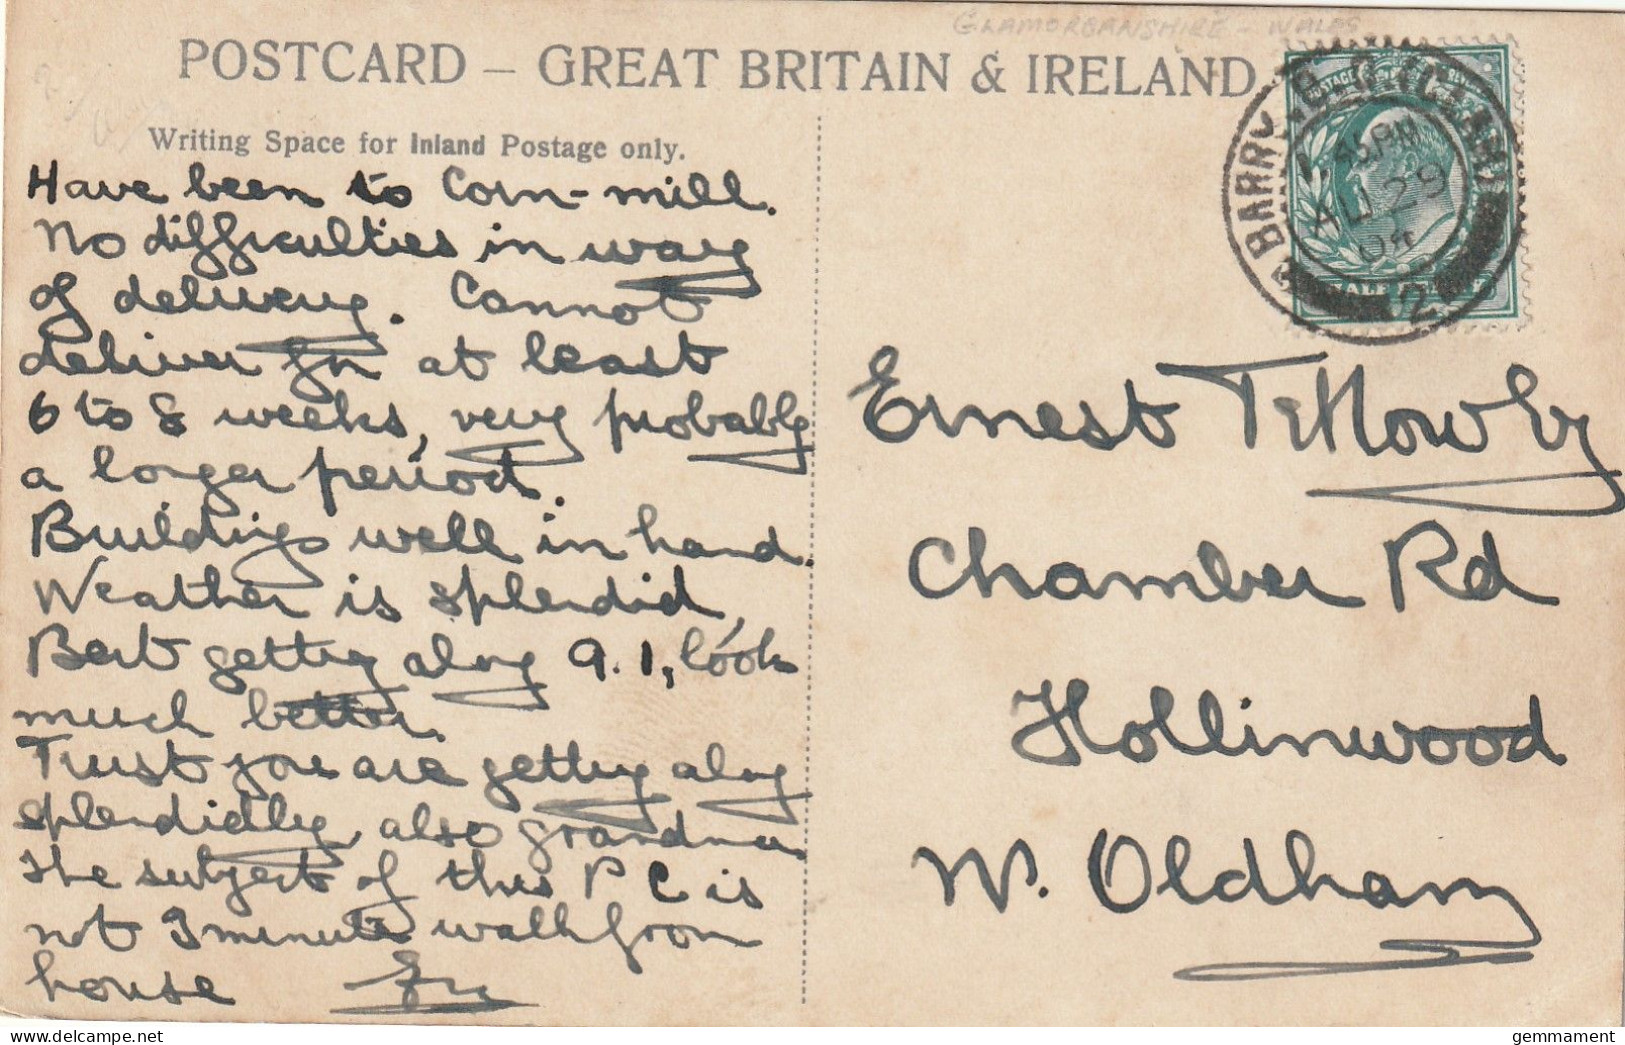 GLAMORGANSHIRE - WALES
POSTCARD – GREAT BRITAIN & IRELAND
Writing Space for Inland Postage only.
Have been to Corn-mill.
No difficulties in way
of delivery. Cannot
deliver for at least
6 to 8 weeks, very probably
a longer period.
Building well in hand.
Weather is splendid,
Bert getting along A.1, look
much better.
Trust you are getting along
splendidly, also grandma
The subject of this P C is
not 3 minute walk from
house
BARRY
45 PM
AU 29
04
2
HALF
Ernest
Chamber Rd
Hollinwood
Nr. Oldham
gemmament